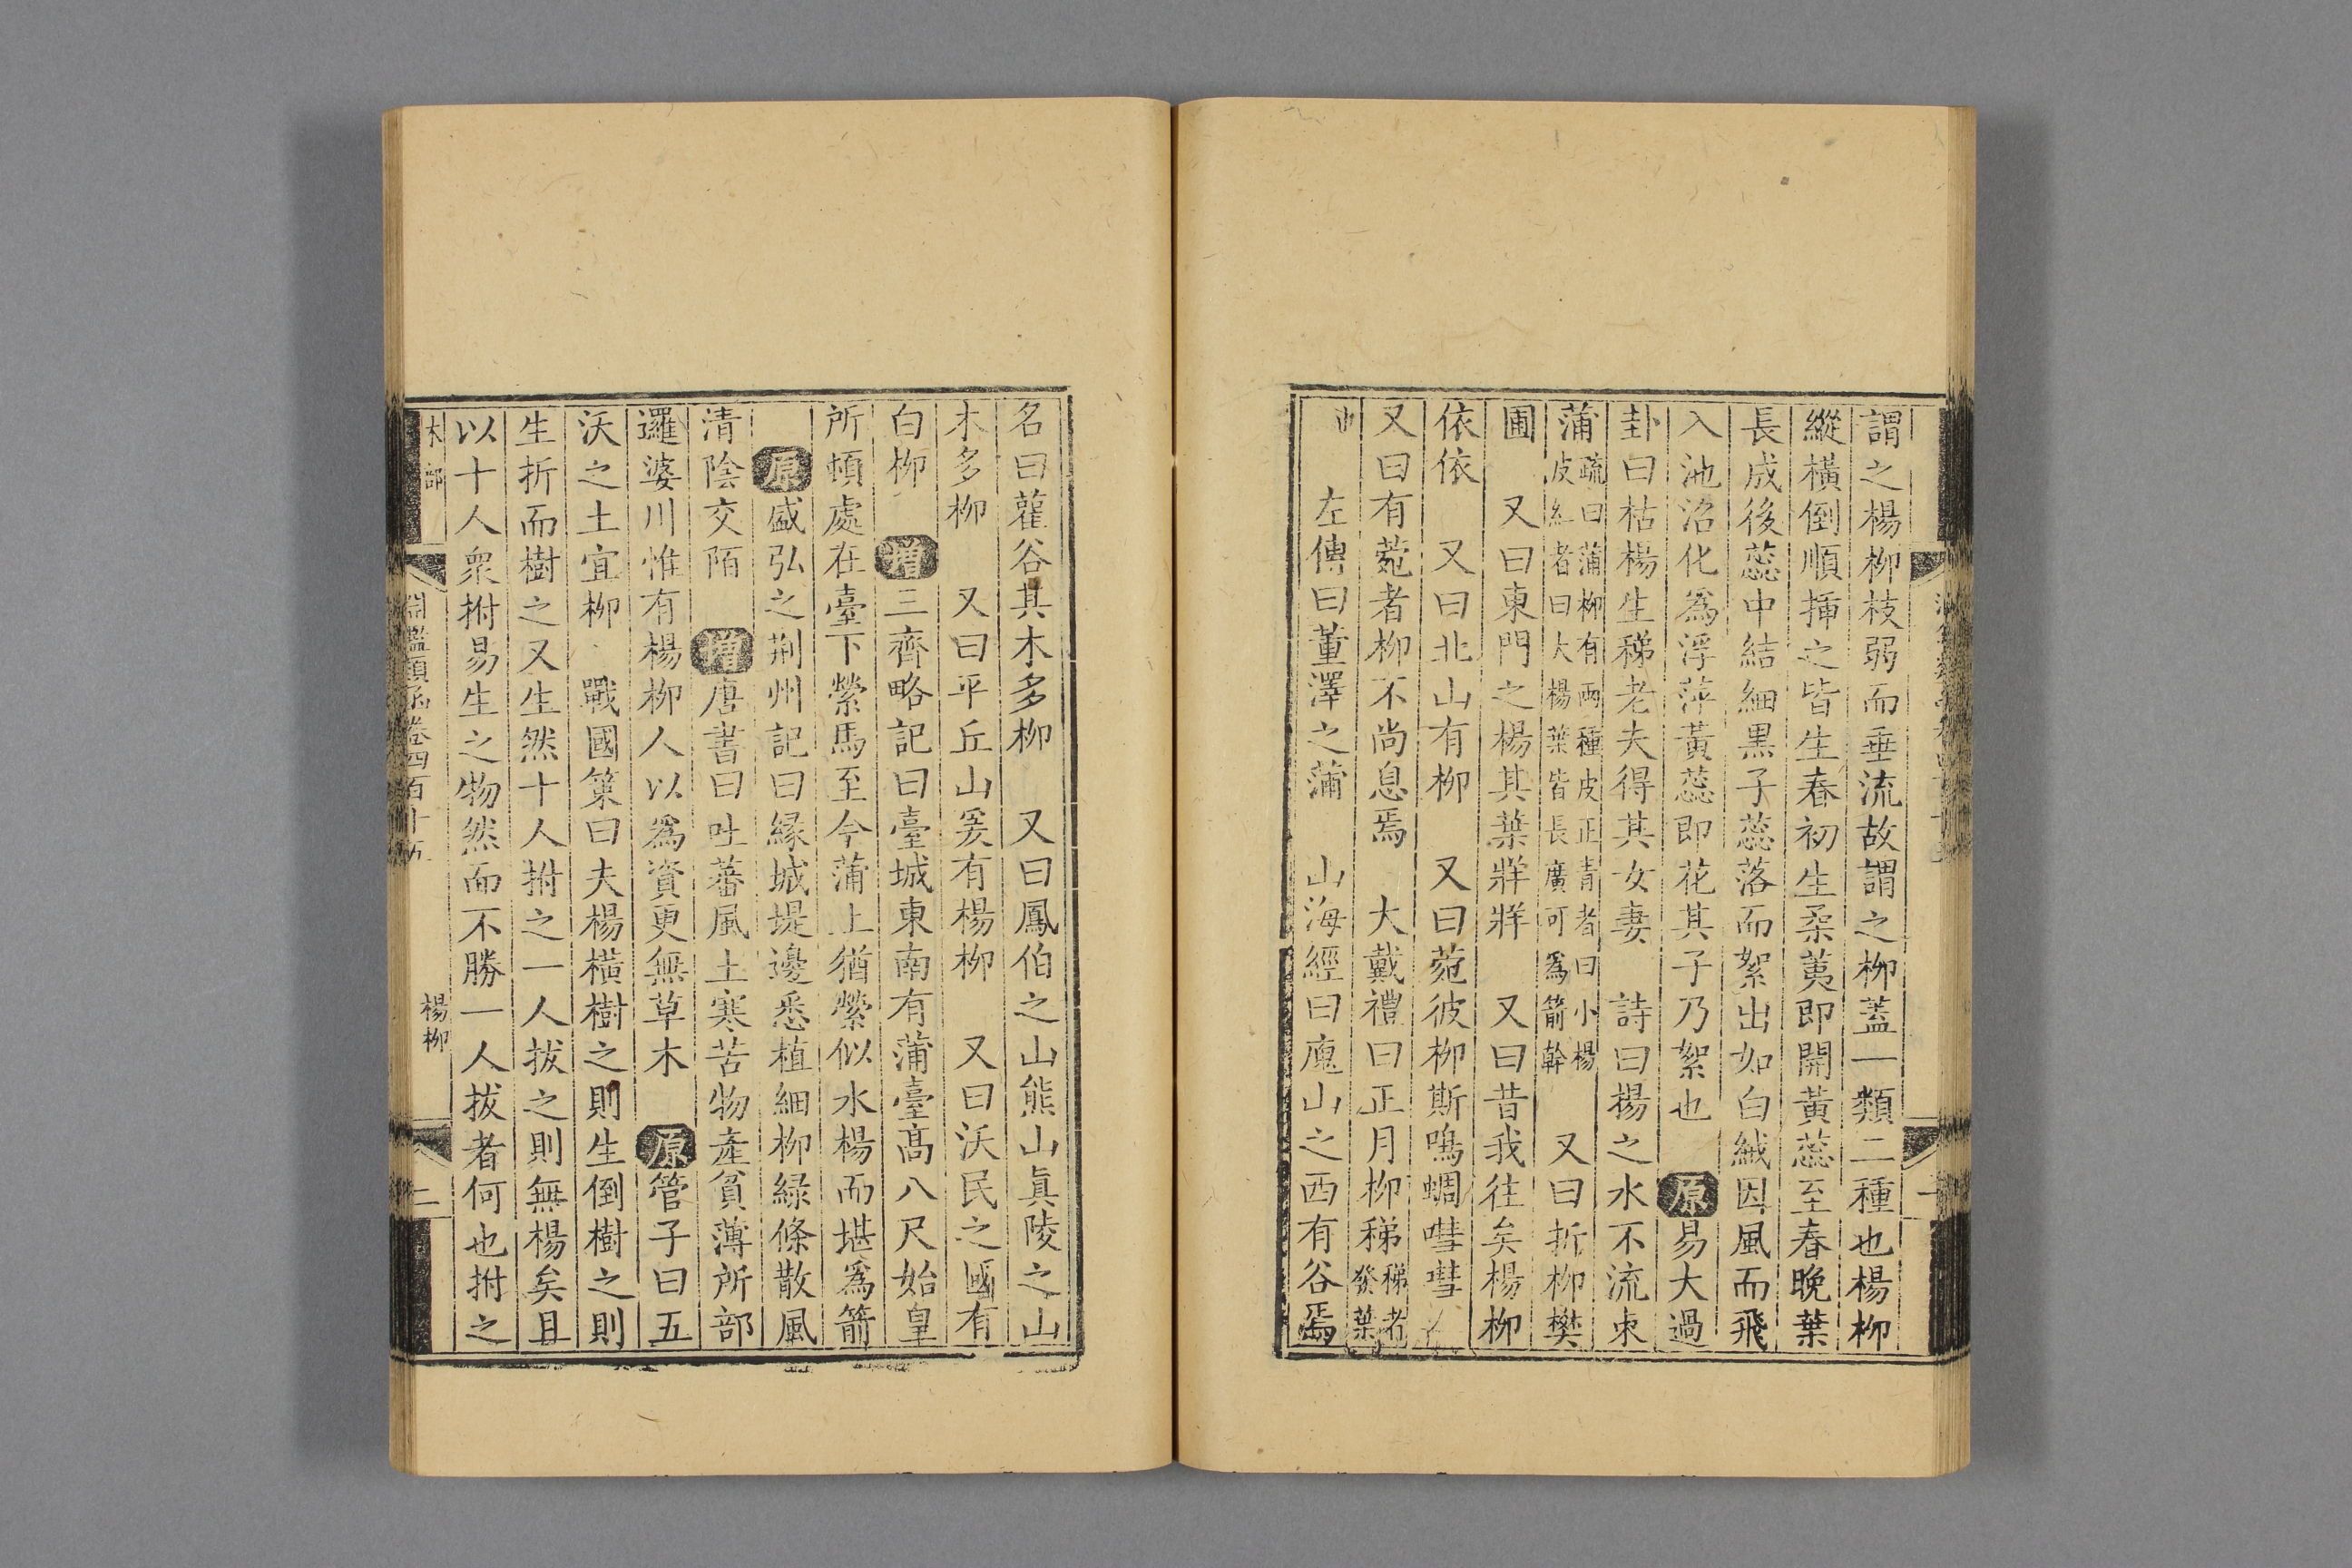 謂之楊柳枝弱而垂流故謂之柳蓋一類二種也楊柳
縱橫倒順揷之皆生春初生柔荑即開黃蕊至春晚葉
長成後蕊中結細黑子蕊落而絮出如白絨因風而飛
入池沼化為浮萍黃蕊即花其子乃絮也 原易大過
卦曰枯楊生稊老夫得其女妻 詩曰揚之水不流束
蒲疏曰蒲柳有兩種皮正青者曰小楊皮紅者曰大楊葉皆長廣可為箭幹 又曰折柳樊
圃 又曰東門之楊其葉牂牂 又曰昔我往矣楊柳
依依 又曰北山有柳 又曰菀彼柳斯鳴蜩嘒嘒
又曰有菀者柳不尚息焉 大戴禮曰正月柳稊稊者發葉
左傳曰董澤之蒲 山海經曰鹿山之西有谷焉
名曰雚谷其木多柳 又曰鳳伯之山熊山眞陵之山
木多柳 又曰平丘山爰有楊柳 又曰沃民之國有
白柳 增三齊略記曰臺城東南有蒲臺高八尺始皇
所頓處在臺下縈馬至今蒲上猶縈似水楊而堪為箭
原盛弘之荆州記曰緣城堤邊悉植細柳綠條散風
清陰交陌 增唐書曰吐蕃風土寒苦物產貧薄所部
邏婆川惟有楊柳人以為資更無草木 原管子曰五
沃之土宜柳 戰國策曰夫楊橫樹之則生倒樹之則
生折而樹之又生然十人拊之一人拔之則無楊矣且
以十人衆拊易生之物然而不勝一人拔者何也拊之
木部
淵鑑類函卷四百十五
楊柳
二